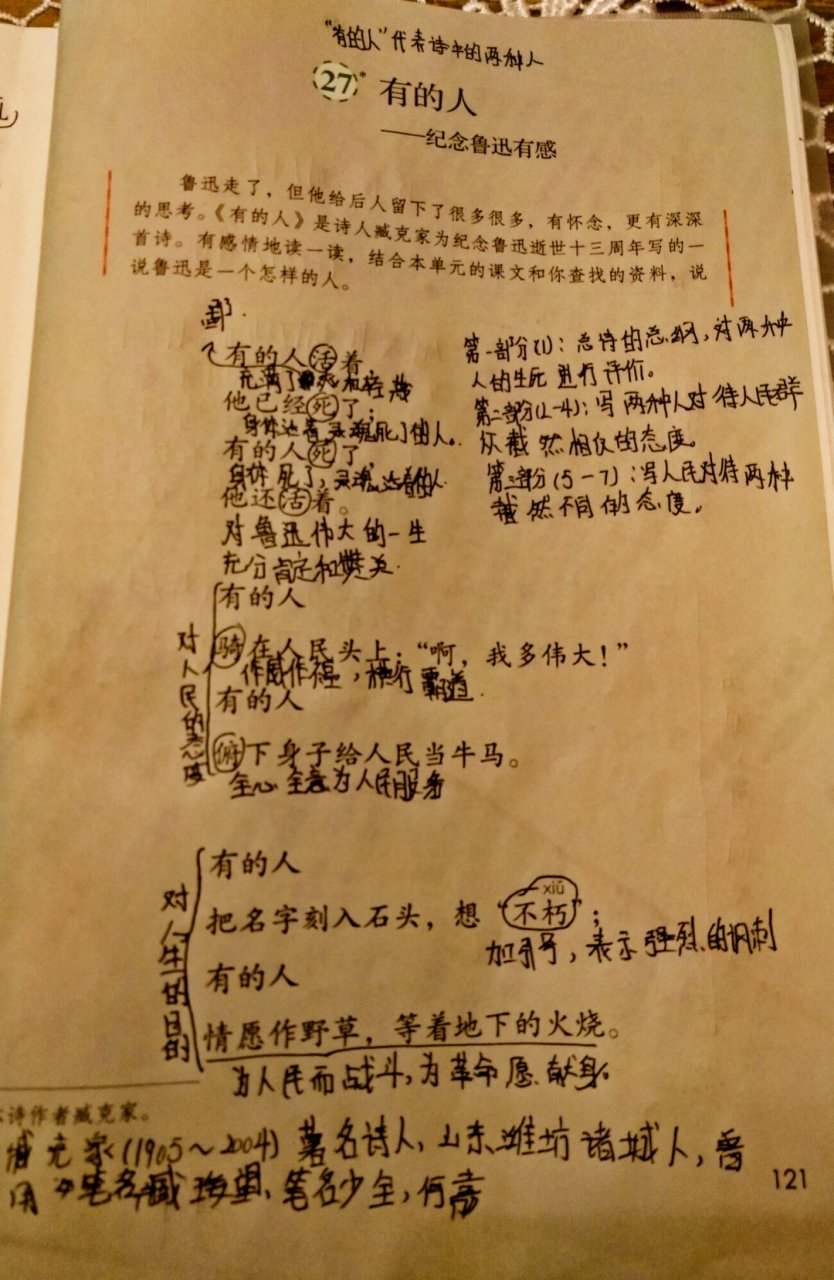 “有的人”代表诗中的两种人
27* 有的人
——纪念鲁迅有感
鲁迅走了，但他给后人留下了很多很多，有怀念，更有深深
的思考。《有的人》是诗人臧克家为纪念鲁迅逝世十三周年写的一
首诗。有感情地读一读，结合本单元的课文和你查找的资料，说
说鲁迅是一个怎样的人。
有的人活着
充满了
他已经死了；
身体活着灵魂死了的人。
有的人死了
身体死了，灵魂活着的人
他还活着。
对鲁迅伟大的一生
充分肯定和赞美
第一部分(1)：总诗的总纲，对两种
人的生死进行评价。
第二部分(2-4)：写两种人对待人民群
众截然相反的态度。
第三部分(5-7)：写人民对待两种
截然不同的态度。
对人民的态度
有的人
骑在人民头上：“啊，我多伟大！”
作威作福，横行霸道
有的人
俯下身子给人民当牛马。
全心全意为人民服务
对人生的目的
有的人
xiǔ
把名字刻入石头，想“不朽”；
加引号，表示强烈的讽刺
有的人
情愿作野草，等着地下的火烧。
为人民而战斗，为革命愿献身。
诗作者臧克家。
臧克家(1905~2004)著名诗人，山东潍坊诸城人，曾
用 笔名臧瑗望，笔名少全，何嘉
121